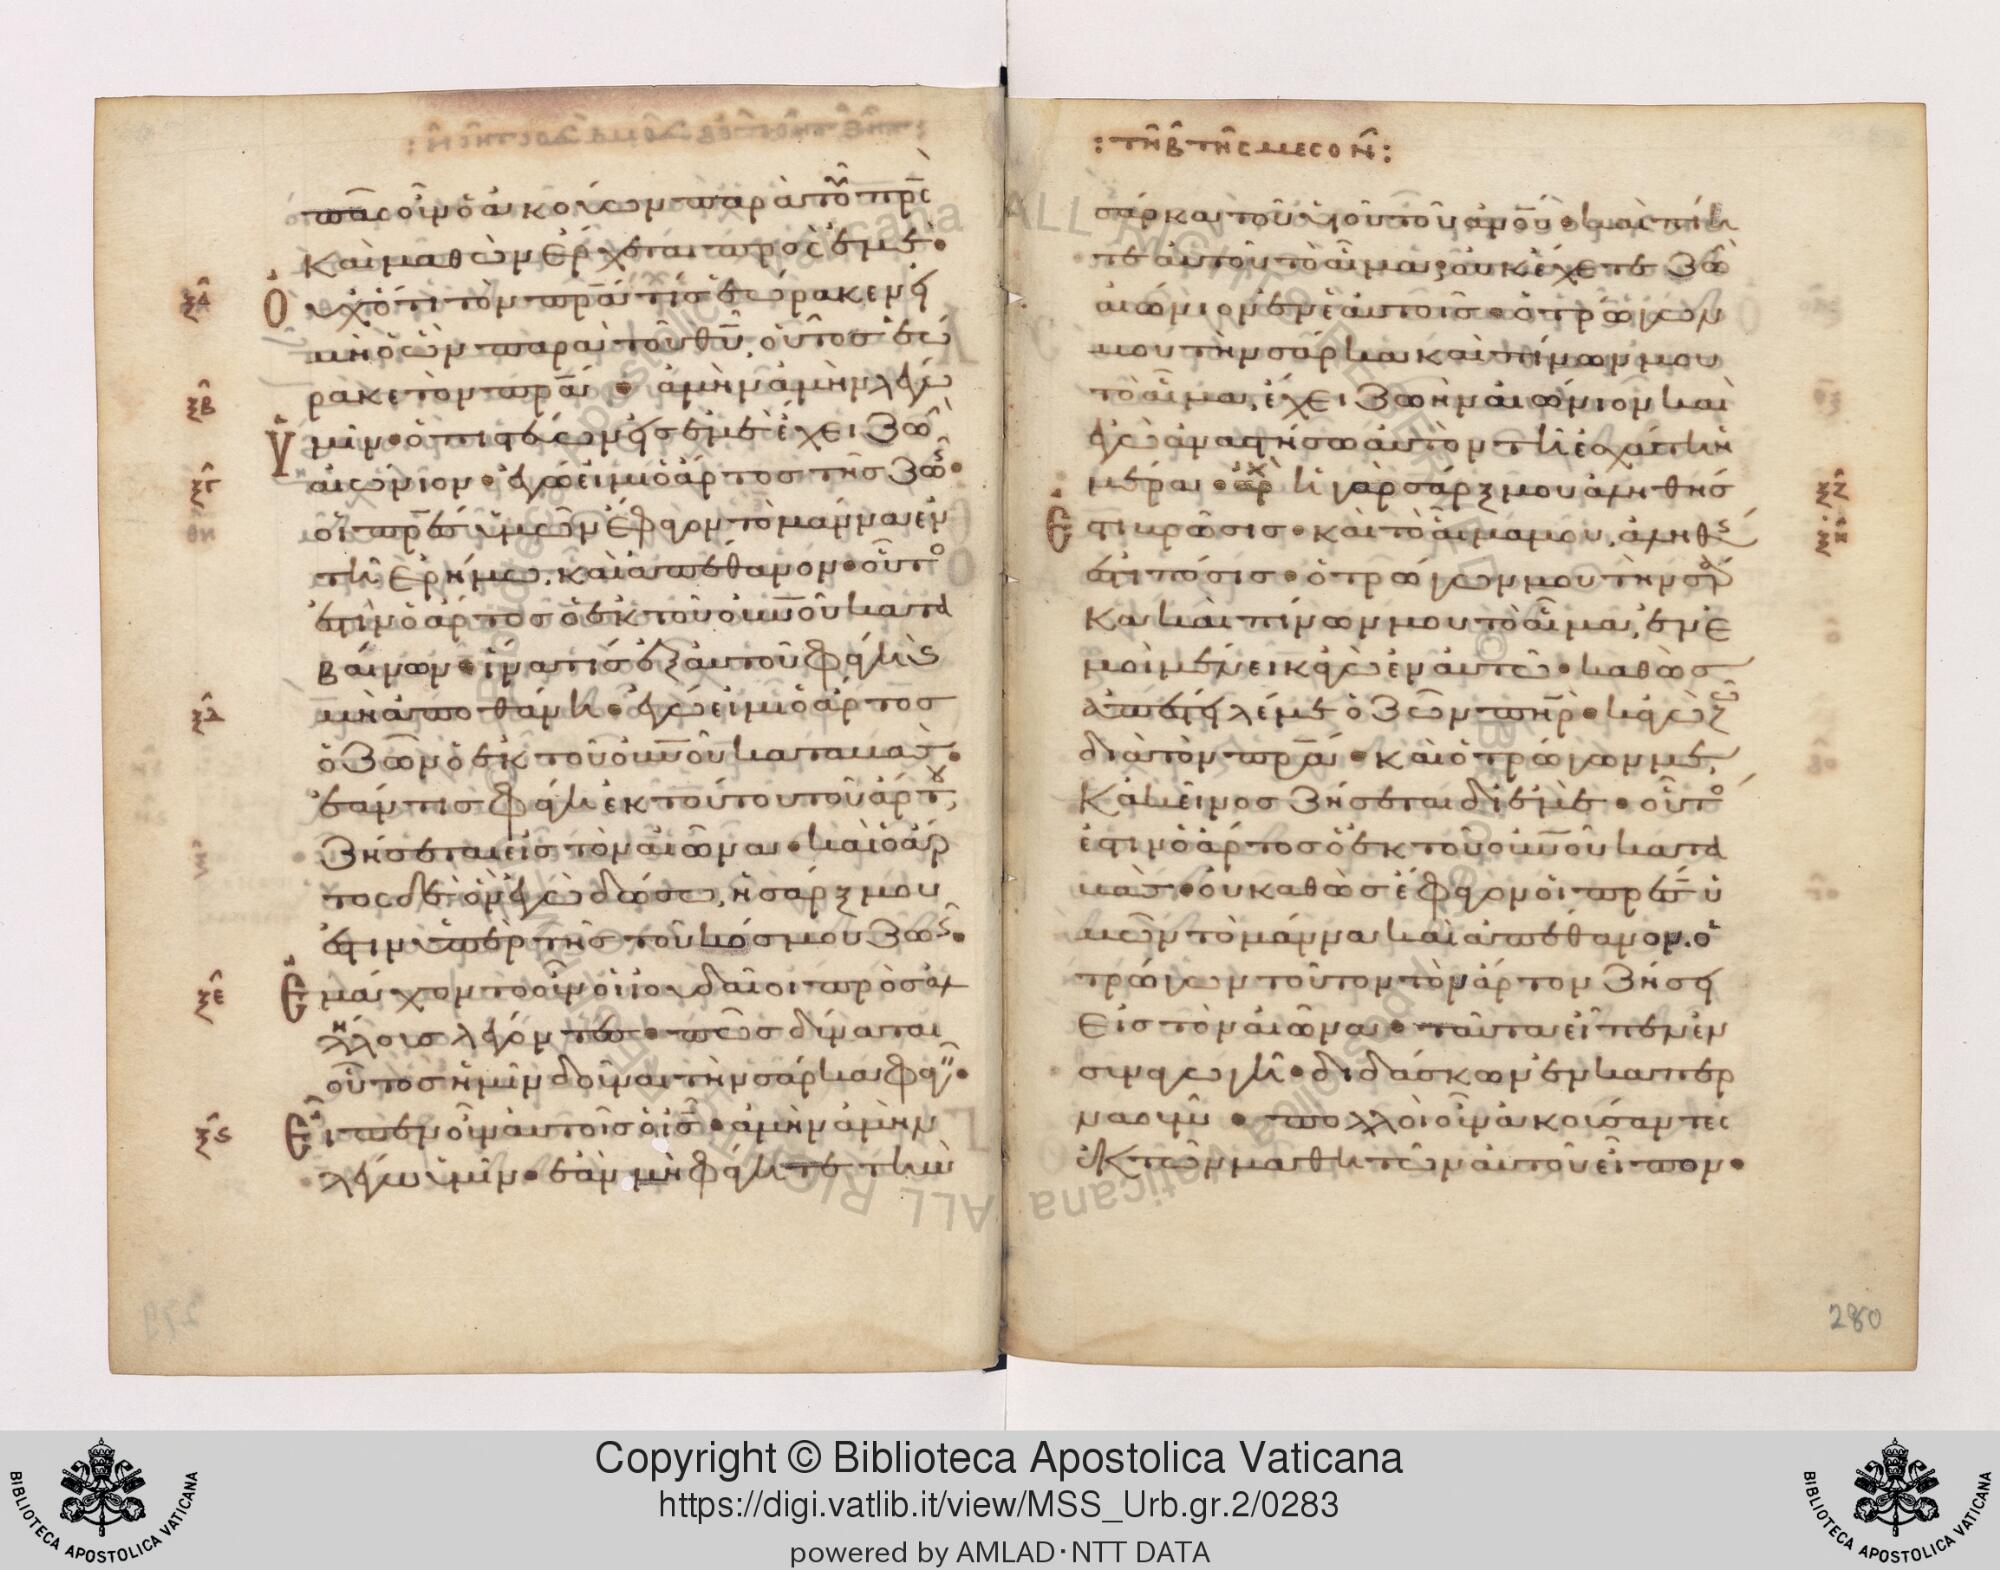 πᾶς οὖν ὁ ἀκούων παρὰ τοῦ πρς
καὶ μαθὼν ἔρχεται πρὸς ἐμέ.
ξα Οὐχ ὅτι τὸν πρα τίς ἑώρακεν εἰ
μὴ ὁ ὢν παρὰ τοῦ θυ, οὗτος ἑώ
ξβ ρακε τὸν πρα. ἀμὴν ἀμὴν λέγω
Ὑμῖν. ὁ πιστεύων εἰς ἐμὲ ἔχει ζωὴν
ξγ αἰώνιον. ἐγώ εἰμι ὁ ἄρτος τῆς ζωῆς.
οἱ πρες ὑμῶν ἔφαγον τὸ μάννα ἐν
τῆ ἐρήμω, καὶ ἀπέθανον. οὗτο
ἐστιν ὁ ἄρτος ὁ ἐκ τοῦ οὐνοῦ κατα
βαίνων. ἵνα τίς ἐξ αὐτοῦ φάγη καὶ
ξδ μὴ ἀποθάνη. ἐγώ εἰμι ὁ ἄρτος
ὁ ζῶν ὁ ἐκ τοῦ οὐνοῦ καταβάς.
ἐάν τις φάγη ἐκ τούτου τοῦ ἄρτου,
ζήσεται εἰς τὸν αἰῶνα. καὶ ὁ ἄρ
τος δὲ ὃν ἐγὼ δώσω, ἡ σάρξ μου
ἐστιν ὑπὲρ τῆς τοῦ κόσμου ζωῆς.
ξε Ἐμάχοντο οὖν οἱ ἰουδαῖοι πρὸς ἀλ
λήλους λέγοντες. πῶς δύναται
οὗτος ἡμῖν δοῦναι τὴν σάρκα φαγεῖν.
ξς Εἶπεν οὖν αὐτοῖς ὁ ις. ἀμὴν ἀμὴν
λέγω ὑμῖν. ἐὰν μὴ φάγητε τὴν
: τῆ β τῆς μεσον :
σάρκα τοῦ υἱοῦ τοῦ ανου. καὶ πίη
τε αὐτοῦ τὸ αἷμα, οὐκ ἔχετε ζωὴν
αἰώνιον ἐν ἑαυτοῖς. ὁ τρώγων
μου τὴν σάρκα καὶ πίνων μου
τὸ αἷμα, ἔχει ζωὴν αἰώνιον καὶ
ἐγὼ ἀναστήσω αὐτὸν τῆ ἐσχάτη ἡ
μέρα. ἀρχ ἡ γὰρ σάρξ μου ἀληθής
Ἐστι βρῶσις. καὶ τὸ αἷμα μου, ἀληθῶς
ἐστι πόσις. ὁ τρώγων μου τὴν σάρ
κα καὶ πίνων μου τὸ αἷμα, ἐν ἐ
μοὶ μένει κἀγὼ ἐν αὐτῶ. καθὼς
ἀπέστειλέ με ὁ ζῶν πηρ. κἀγὼ ζῶ
διὰ τὸν πρα. καὶ ὁ τρώγων με,
κἀκεῖνος ζήσεται δι ἐμέ. οὗτο
ἐστιν ὁ ἄρτος ὁ ἐκ τοῦ οὐνοῦ κατα
βάς. οὐ καθὼς ἔφαγον οἱ πρες ὑ
μῶν τὸ μάννα καὶ ἀπέθανον. ὁ
τρώγων τοῦτον τὸν ἄρτον ζήσει
εἰς τὸν αἰῶνα. ταῦτα εἶπεν ἐν
συναγωγῆ. διδάσκων ἐν καπερ
ναούμ. πολλοὶ οὖν ἀκούσαντες
ἐκ τῶν μαθητῶν αὐτοῦ εἶπον.
280
Copyright © Biblioteca Apostolica Vaticana
https://digi.vatlib.it/view/MSS_Urb.gr.2/0283
powered by AMLAD·NTT DATA
BIBLIOTECA APOSTOLICA VATICANA
BIBLIOTECA APOSTOLICA VATICANA